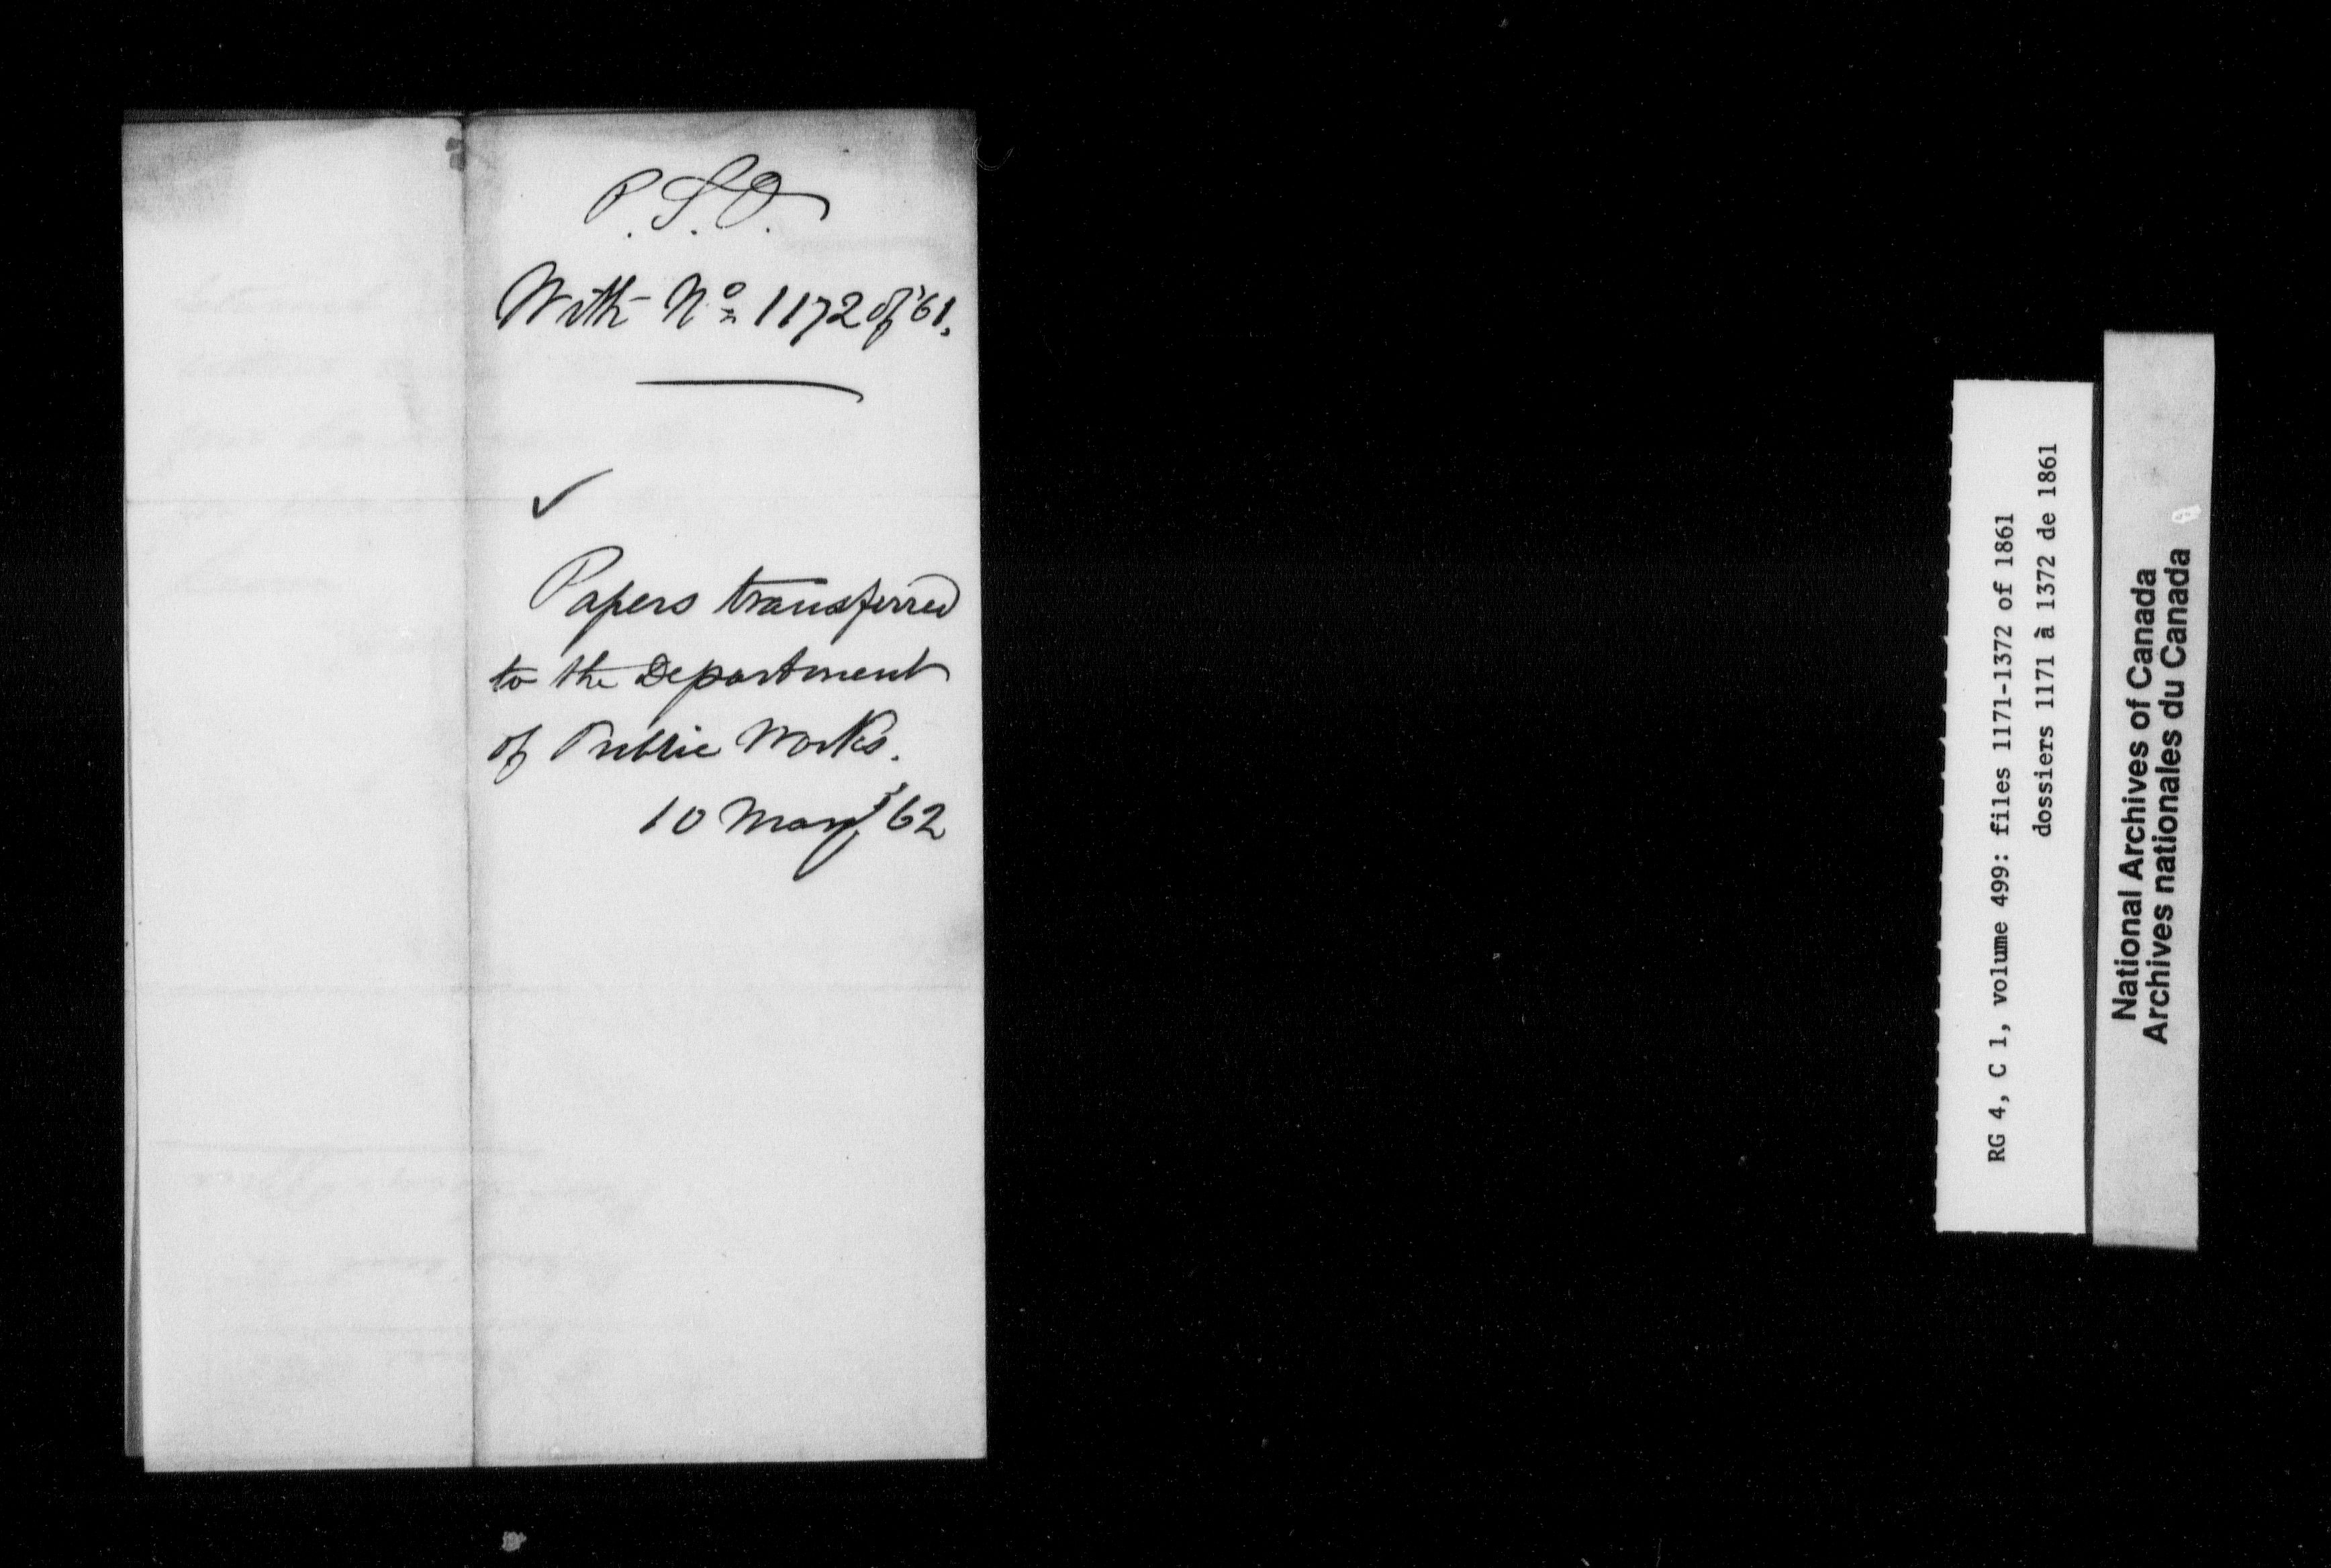 P.S.O.
With No 1172 of '61.
Papers transferred
to the Department
of Public Works.
10 May '62
RG 4, C 1, volume 499: files 1171-1372 of 1861
dossiers 1171 à 1372 de 1861
National Archives of Canada
Archives nationales du Canada